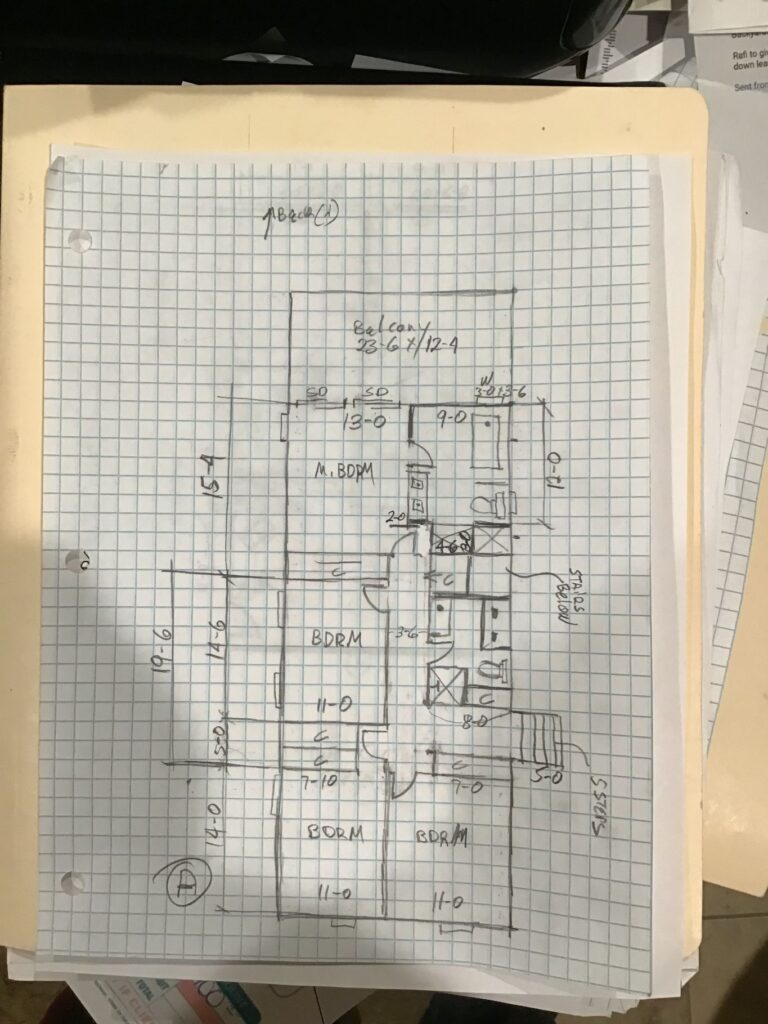 Balcony
23-6 x 12-4
SD
SD
W
3-0x3-6
13-0
9-0
15-4
M. BDRM
12-0
2-0
4-6
C
C
STAIRS
BELOW
19-6
14-6
BDRM
3-6
11-0
C
8-0
5-0
C
C
C
7-10
7-0
5-0
5 STEPS
14-0
BDRM
BDRM
D
11-0
11-0
Refi to
down lea
Sent from
TOTAL
IF CLI